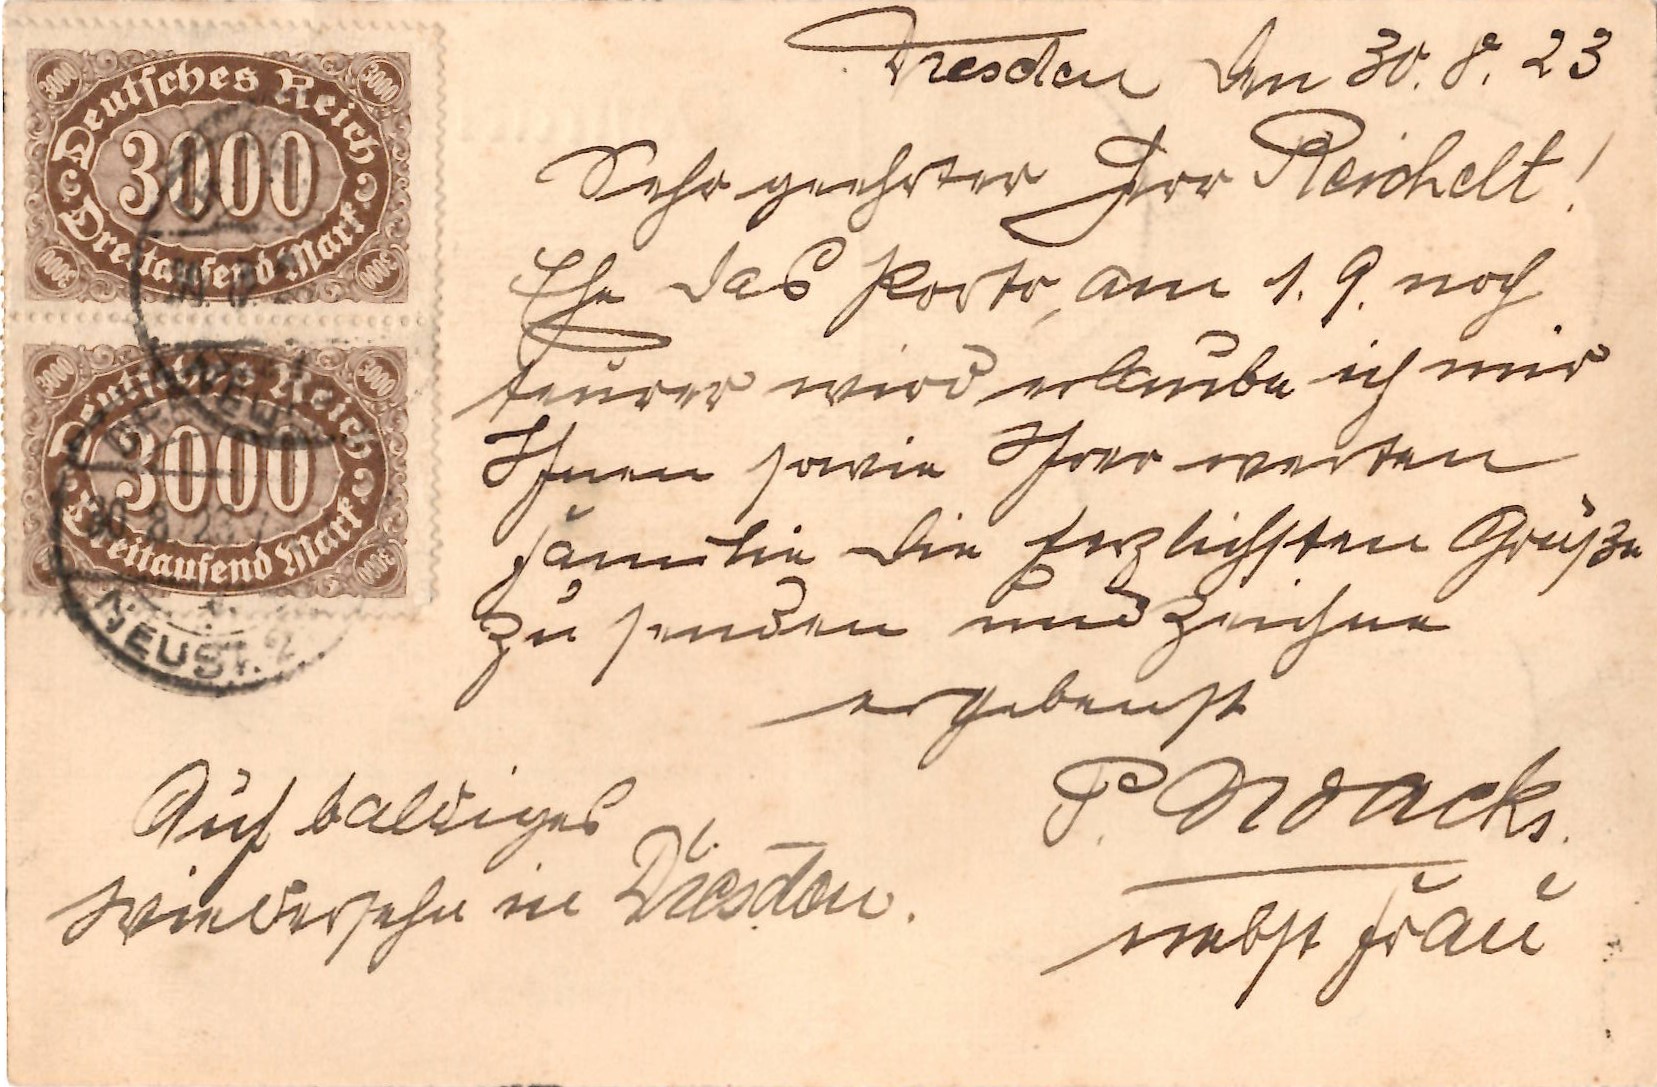 3000 3000
Deutsches Reich
3000
Dreitausend Mark
3000 3000
3000 3000
Deutsches Reich
3000
Dreitausend Mark
3000
30.8.23
NEUST. 2
Dresden den 30. 8. 23
Sehr geehrter Herr Reichelt!
Ehe das Porto, am 1. 9. noch
teurer wird erlaube ich mir
Ihnen sowie Ihrer werten
Familie die herzlichsten Grüße
zu senden und zeichne
ergebenst
P. Noacks.
nebst Frau
Auf baldiges
Wiedersehn in Dresden.